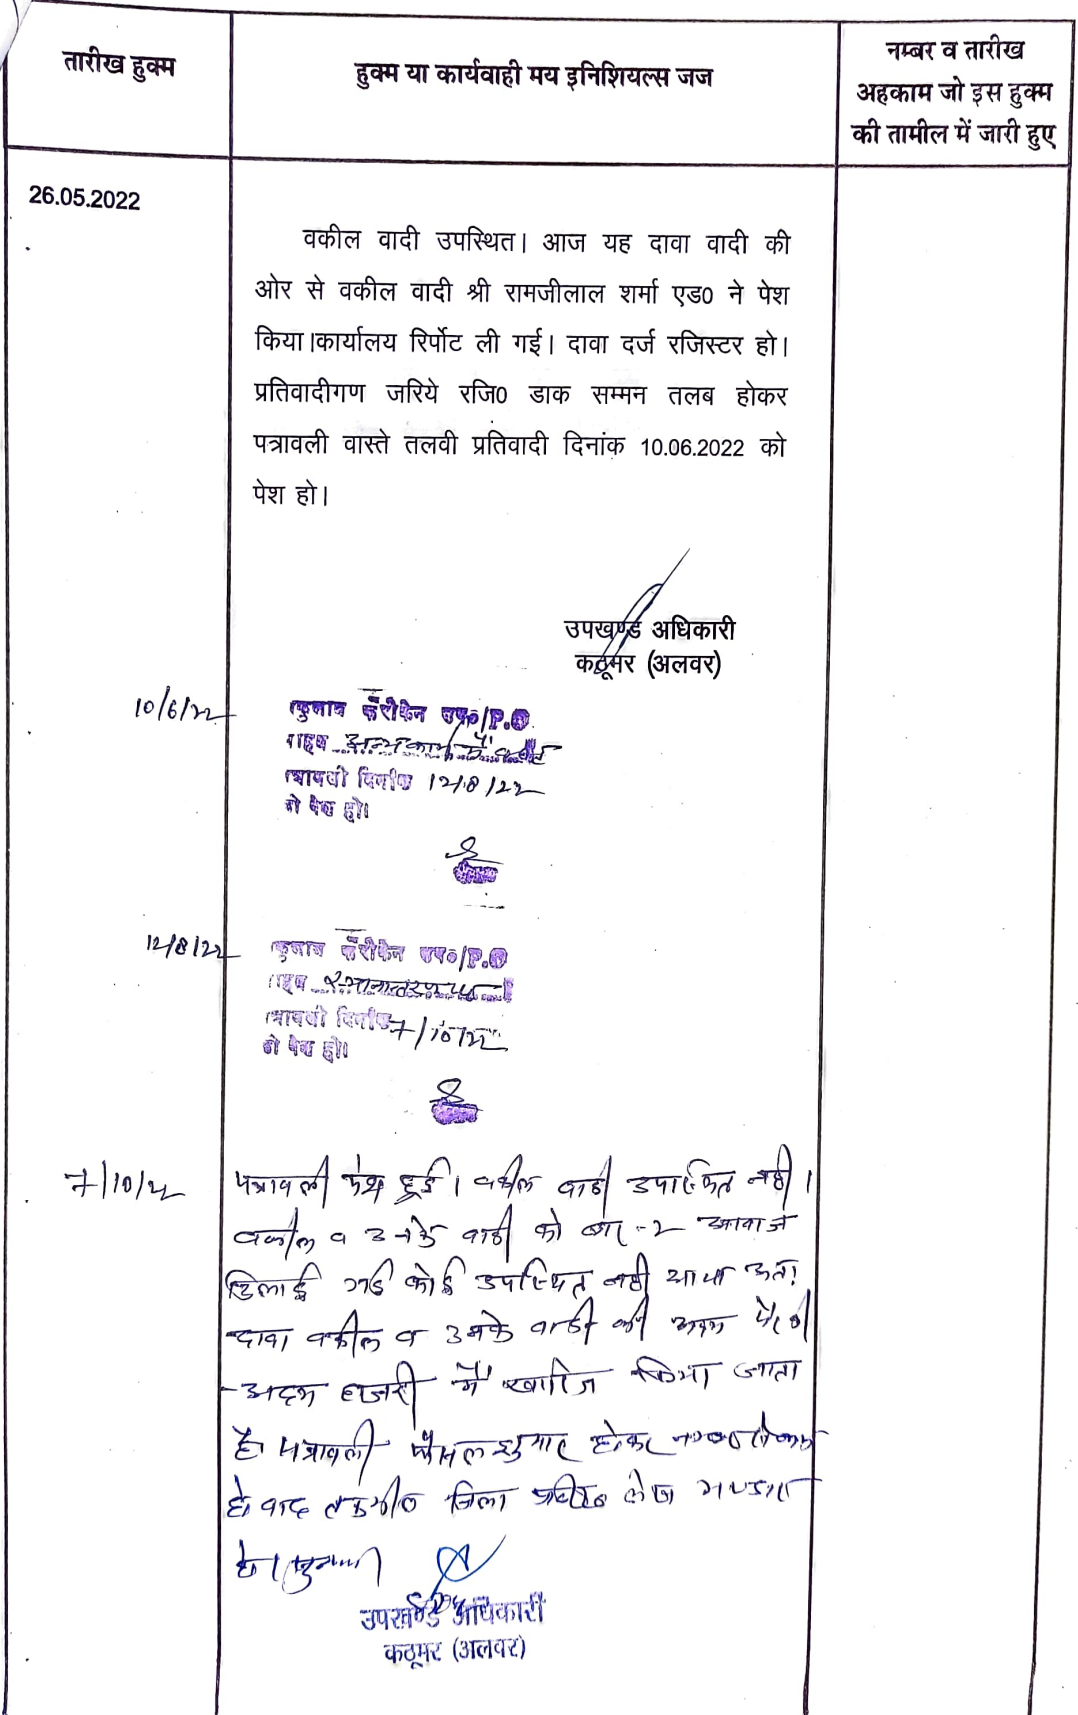 तारीख हुक्म
हुक्म या कार्यवाही मय इनिशियल्स जज
नम्बर व तारीख
अहकाम जो इस हुक्म
की तामील में जारी हुए
26.05.2022
वकील वादी उपस्थित। आज यह दावा वादी की
ओर से वकील वादी श्री रामजीलाल शर्मा एड0 ने पेश
किया।कार्यालय रिर्पोट ली गई। दावा दर्ज रजिस्टर हो।
प्रतिवादीगण जरिये रजि0 डाक सम्मन तलब होकर
पत्रावली वास्ते तलवी प्रतिवादी दिनांक 10.06.2022 को
पेश हो।
उपखण्ड अधिकारी
कठूमर (अलवर)
10/6/22
P.O
दिनांक 12/8/22
पेश हो।
12/8/22
P.O
स्थानान्तरण
दिनांक 7/10/22
पेश हो।
7/10/22
पत्रावली पेश हुई। वकील वादी उपस्थित नही।
वकील व उनके वादी को बार-2 आवाज
दिलाई गई कोई उपस्थित नही आया अतः
दावा वकील व उनके वादी की अदम पैरवी
अदम हाजरी में खारिज किया जाता
है। पत्रावली फैसल शुमार होकर नम्बर से कम
हो वाद तकमील जिला अभिलेख
हो।
उपखण्ड अधिकारी
कठूमर (अलवर)